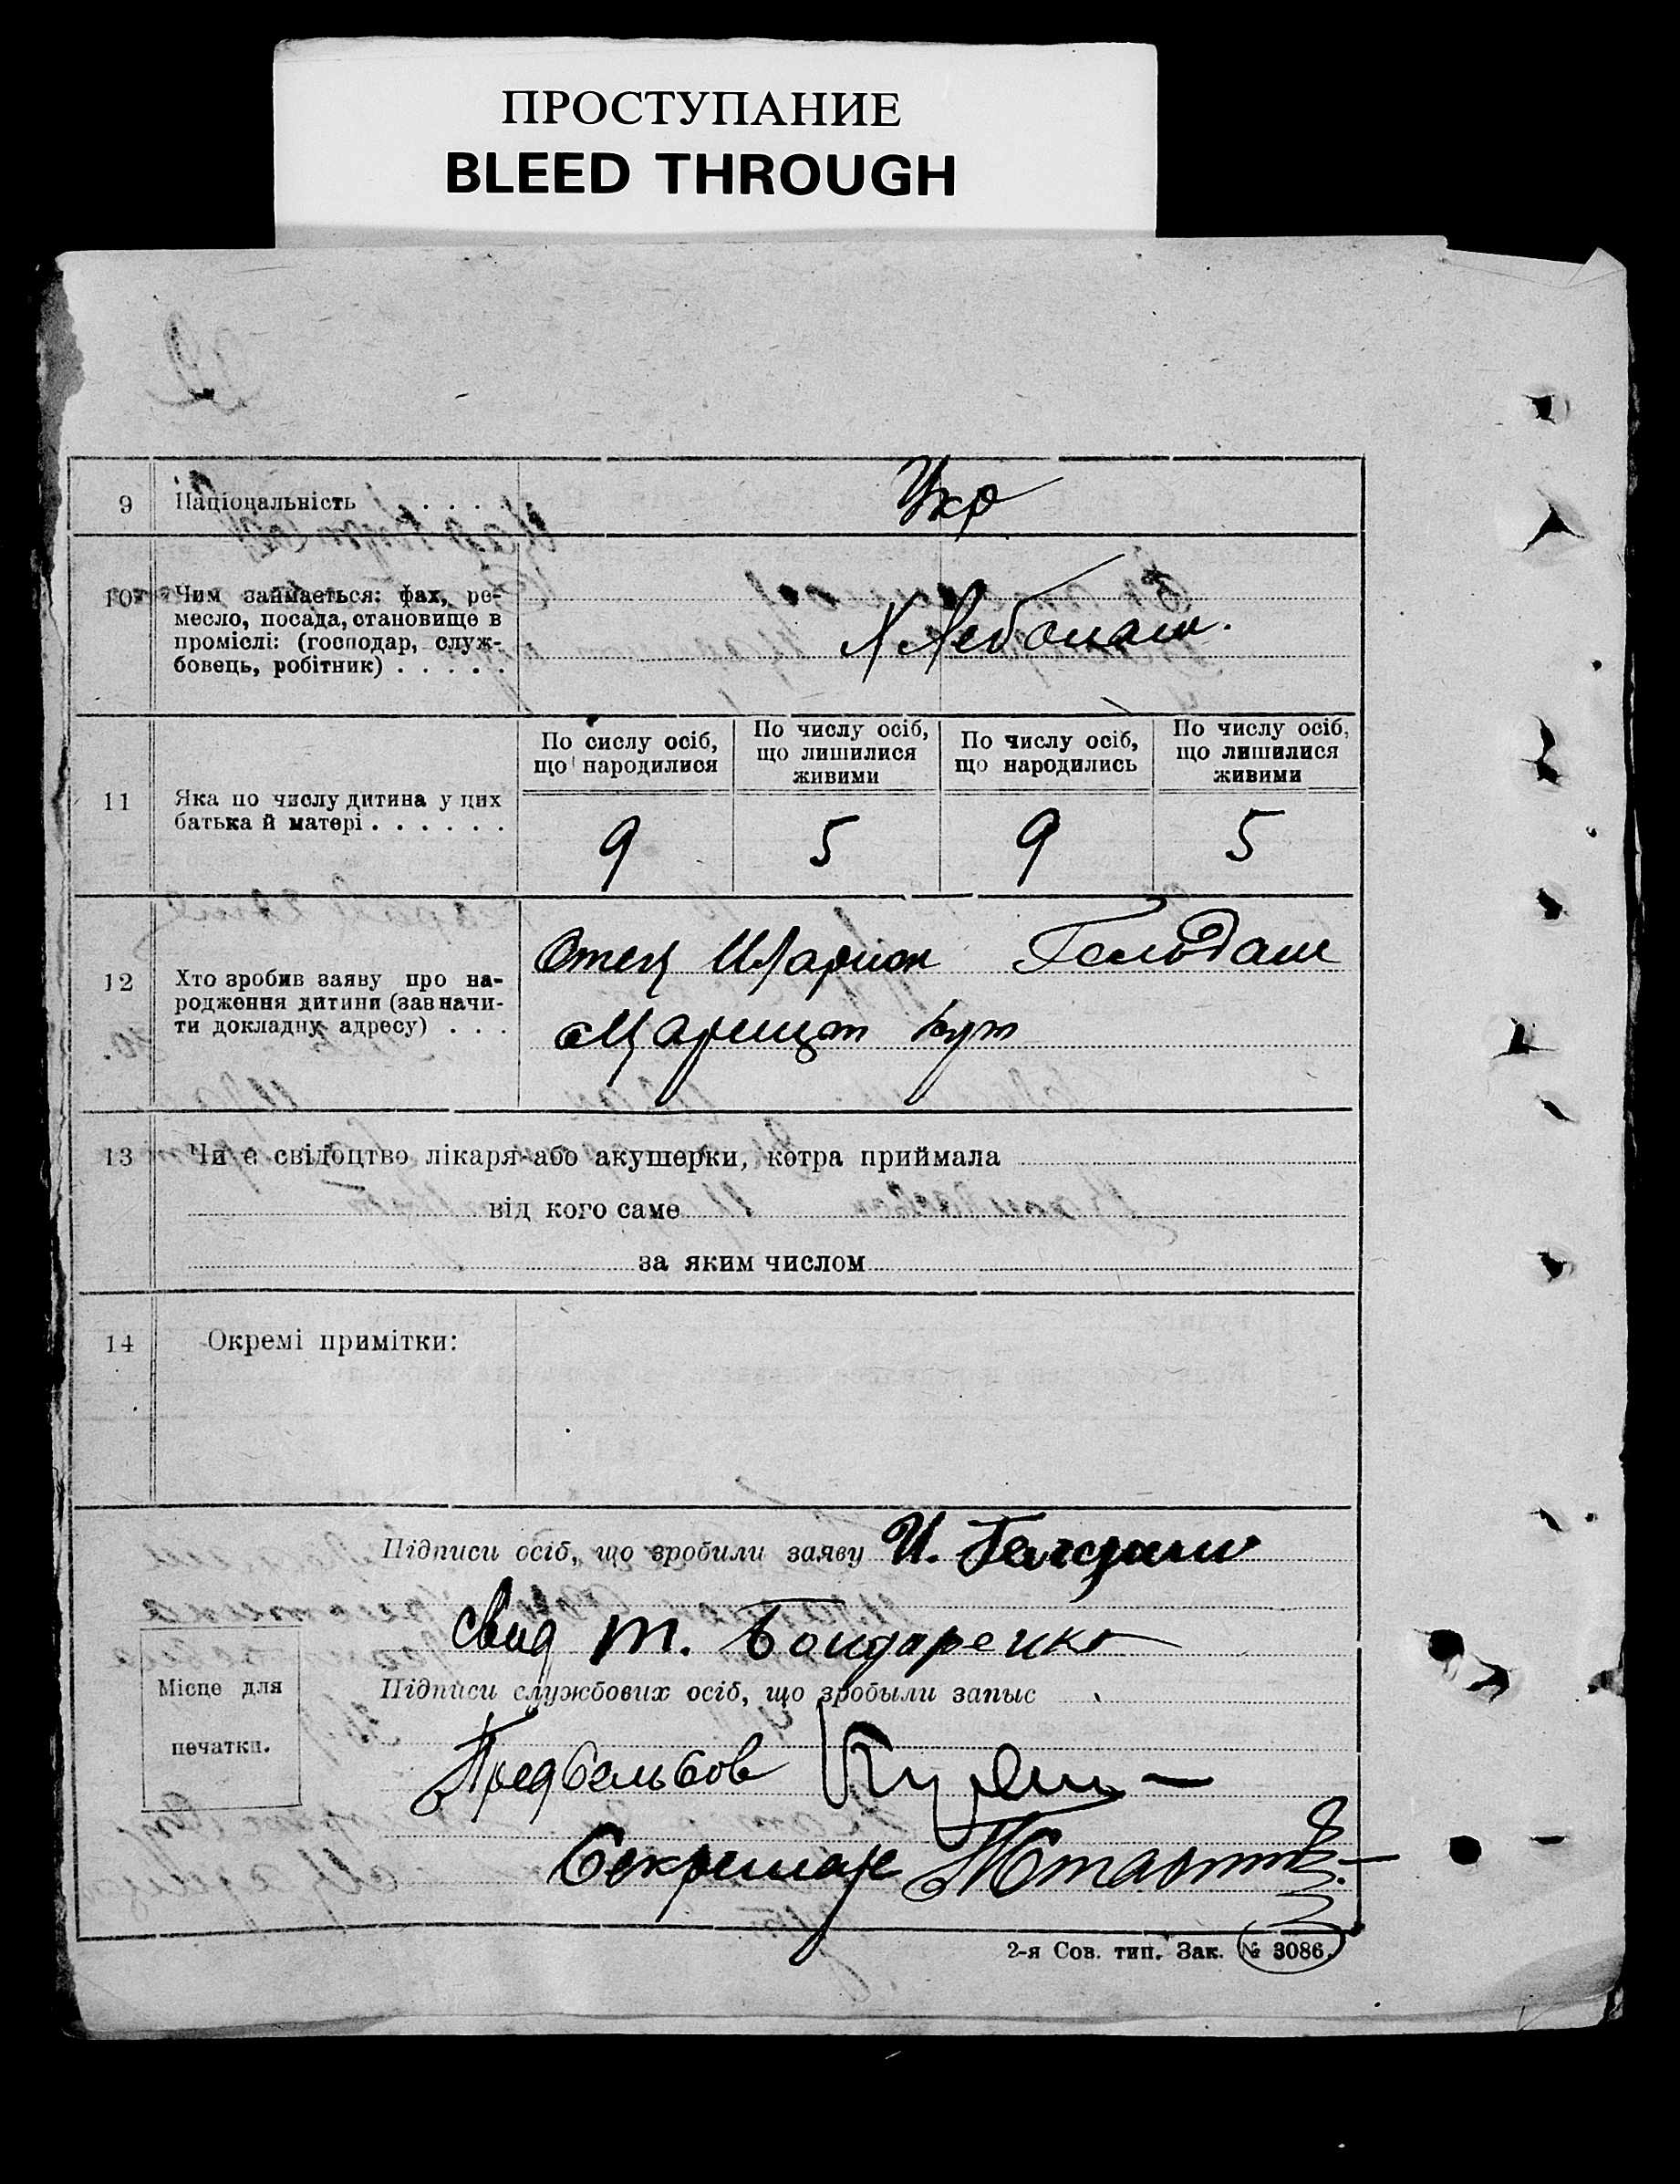 ПРОСТУПАНИЕ
BLEED THROUGH
9 Національність . . . . Укр
10 Чим займається: фах, ре-
месло, посада, становище в
промислі: (господар, служ-
бовець, робітник) . . . . .
Хлебопаш.
По сислу осіб,
що народилися
По числу осіб,
що лишилися
живими
По числу осіб,
що народились
По числу осіб,
що лишилися
живими
11 Яка по числу дитина у цих
батька й матері . . . . . .
9 5 9 5
12 Хто зробив заяву про на-
родження дитини (зазначи-
ти докладну адресу) . . .
Отец Иларион Гельдаш
Марицын Кут
13 Чи є свідоцтво лікаря або акушерки, котра приймала
від кого саме
за яким числом
14 Окремі примітки:
Підписи осіб, що зробили заяву И.
Свид Т. Бондаренко
Підписи службових осіб, що зробыли запыс
Місце для
печатки.
Секретарь
2-я Сов. тип. Зак. № 3086.